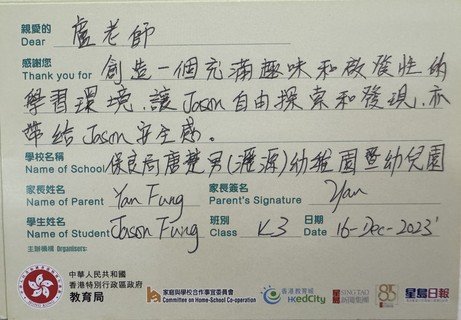 親愛的
Dear 盧老師
感謝您
Thank you for 創造一個充滿趣味和啟發性的
學習環境,讓Jason自由探索和發現,亦
帶給Jason安全感。
學校名稱
Name of School 保良局唐楚男(瀝源)幼稚園暨幼兒園
家長姓名 家長簽名
Name of Parent Yan Fung Parent's Signature Yan
學生姓名 班別 日期
Name of Student Jason Fung Class K3 Date 16-Dec-2023
主辦機構 Organisers:
中華人民共和國
香港特別行政區政府
教育局
家庭與學校合作事宜委員會
Committee on Home-School Co-operation
香港教育城
HKedCity
SING TAO
新聞集團
85
星島日報